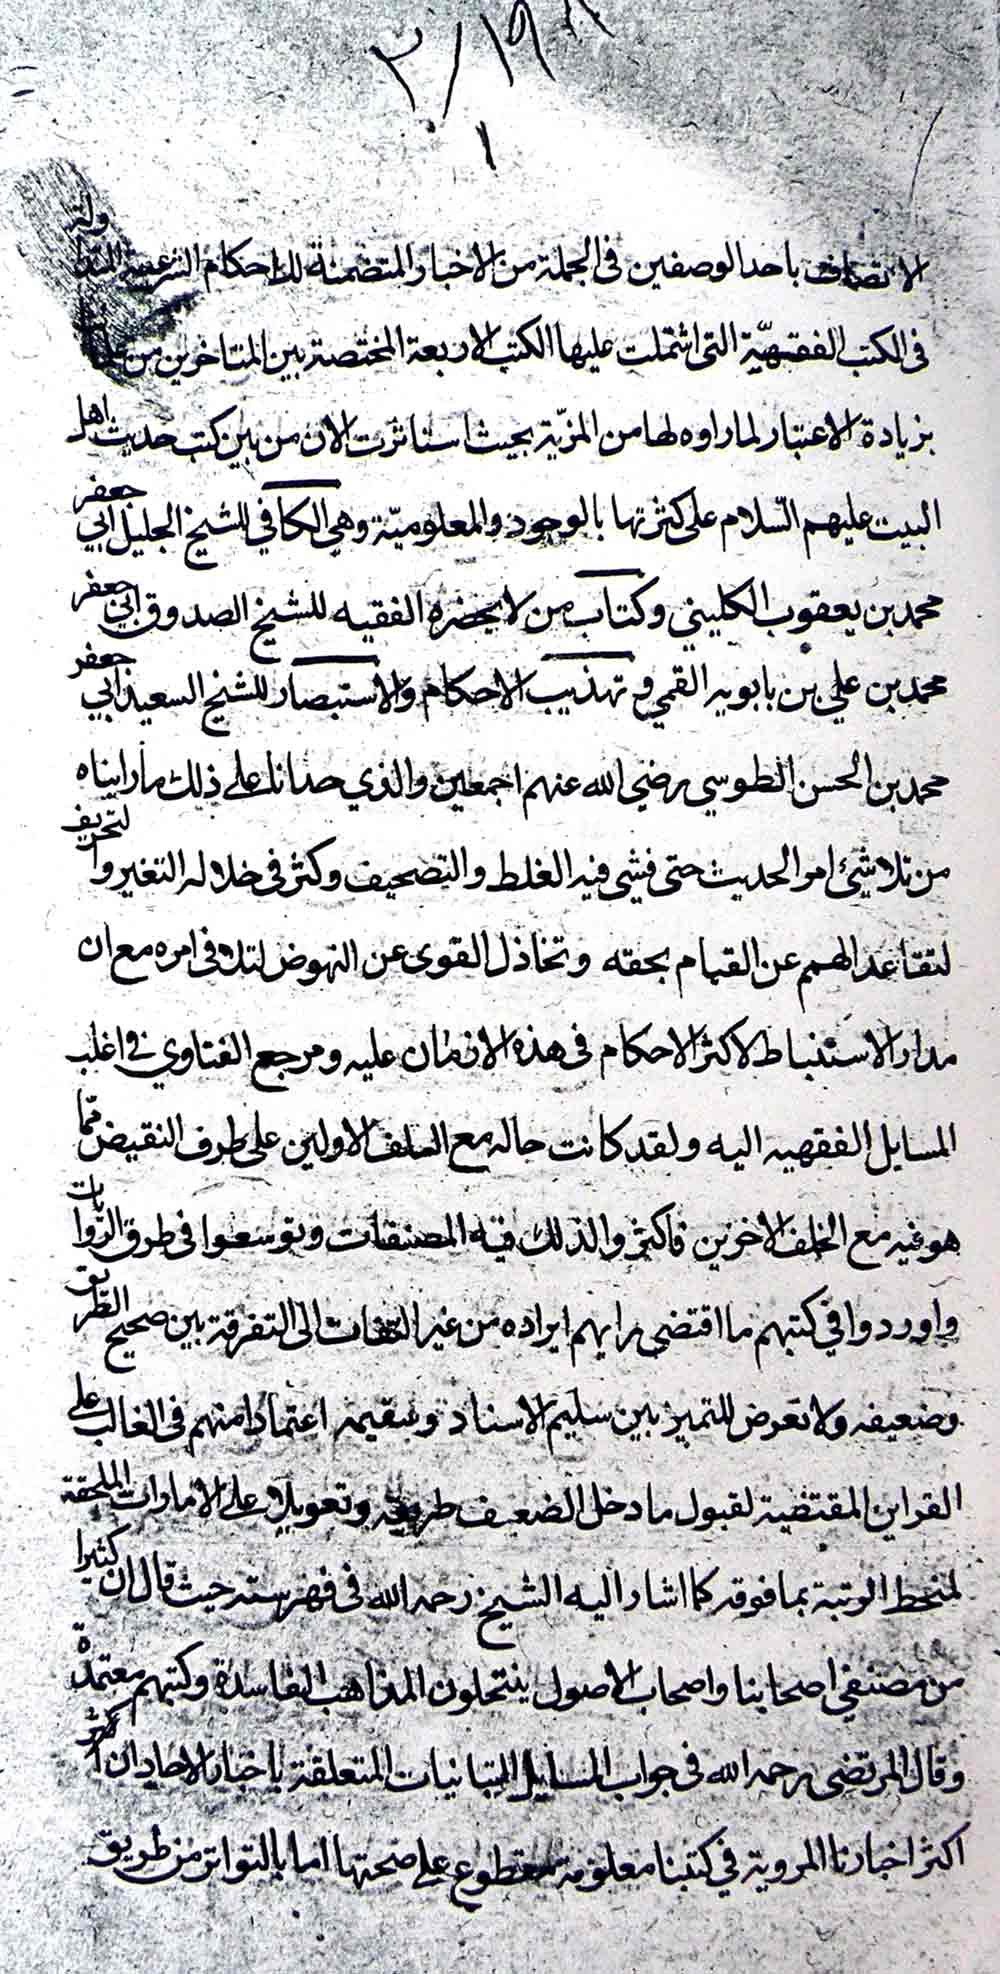 ٣/١٩
١
الاتصاف باحد الوصفين فى الجملة من الاخبار المتضمنة للاحكام الشرعية المتداولة
فى الكتب الفقهيّة التى اشتملت عليها الكتب الاربعة المختصة بين المتاخرين من
بزيادة الاعتبار لما راوه لها من المزيّة بحيث استاثرت الان من بين كتب حديث اهل
البيت عليهم السّلام على كثرتها بالوجود والمعلوميّة وهى الكافي للشيخ الجليل ابي جعفر
محمد بن يعقوب الكليني وكتاب من لا يحضره الفقيه للشيخ الصدوق ابي جعفر
محمد بن علي بن بابويه القمي و تهذيب الاحكام والاستبصار للشيخ السعيد ابي جعفر
محمد بن الحسن الطوسي رضي الله عنهم اجمعين والذي حدانا على ذلك ما رايناه
من تلاشئ امر الحديث حتى فشى فيه الغلط والتصحيف وكثر فى خلاله التغير والتحريف
لتقاعد الهمم عن القيام بحقه وتخاذل القوى عن النهوض لتلافى امره مع ان
مدار الاستنباط لاكثر الاحكام فى هذه الازمان عليه ومرجع الفتاوي في اغلب
المسايل الفقهيه اليه ولقد كانت حاله مع السلف الاولين على طرف النقيض مما
هو فيه مع الخلف الاخرين فاكثروا لذلك فيه المصنفات وتوسعوا فى طرق الرّوايات
واوردوا في كتبهم ما اقتضى رايهم ايراده من غير التفات الى التفرقة بين صحيح الطريق
وضعيفه ولا تعرض للتميز بين سليم الاسناد وسقيمه اعتمادا منهم فى الغالب على
القراين المقتضية لقبول ما دخل الضعيف طريقه وتعويلا على الامارات الملحقة
لمنحط الرتبة بما فوقه كما اشار اليه الشيخ رحمه الله فى فهرسته حيث قال ان كثيرا
من مصنفي اصحابنا واصحاب الاصول ينتحلون المذاهب الفاسدة وكتبهم معتمدة
وقال المرتضى رحمه الله فى جواب المسايل التبانيات المتعلقة باخبار الاحاد ان اكثر
اكثر اخبارنا المروية في كتبنا معلومة مقطوع على صحتها اما بالتواتر من طريق